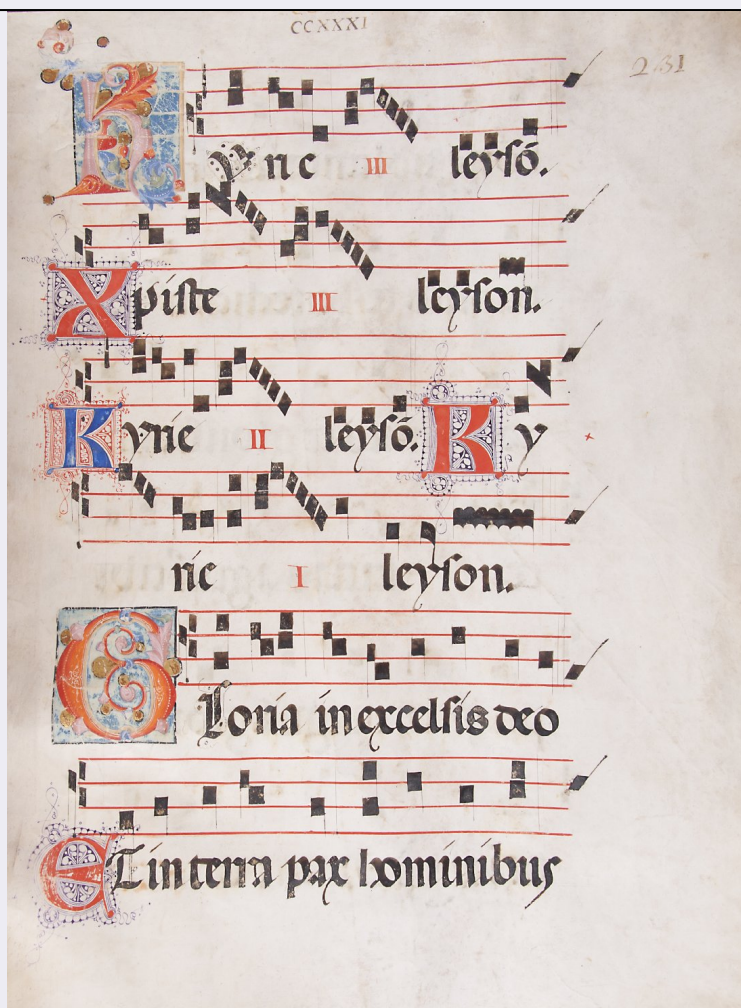 CCXXXI
231
Kyrie III leysō.
Xpiste III leyson.
Kyrie II leysō. Ky
rie I leyson.
Gloria in excelsis deo
ET in terra pax hominibus